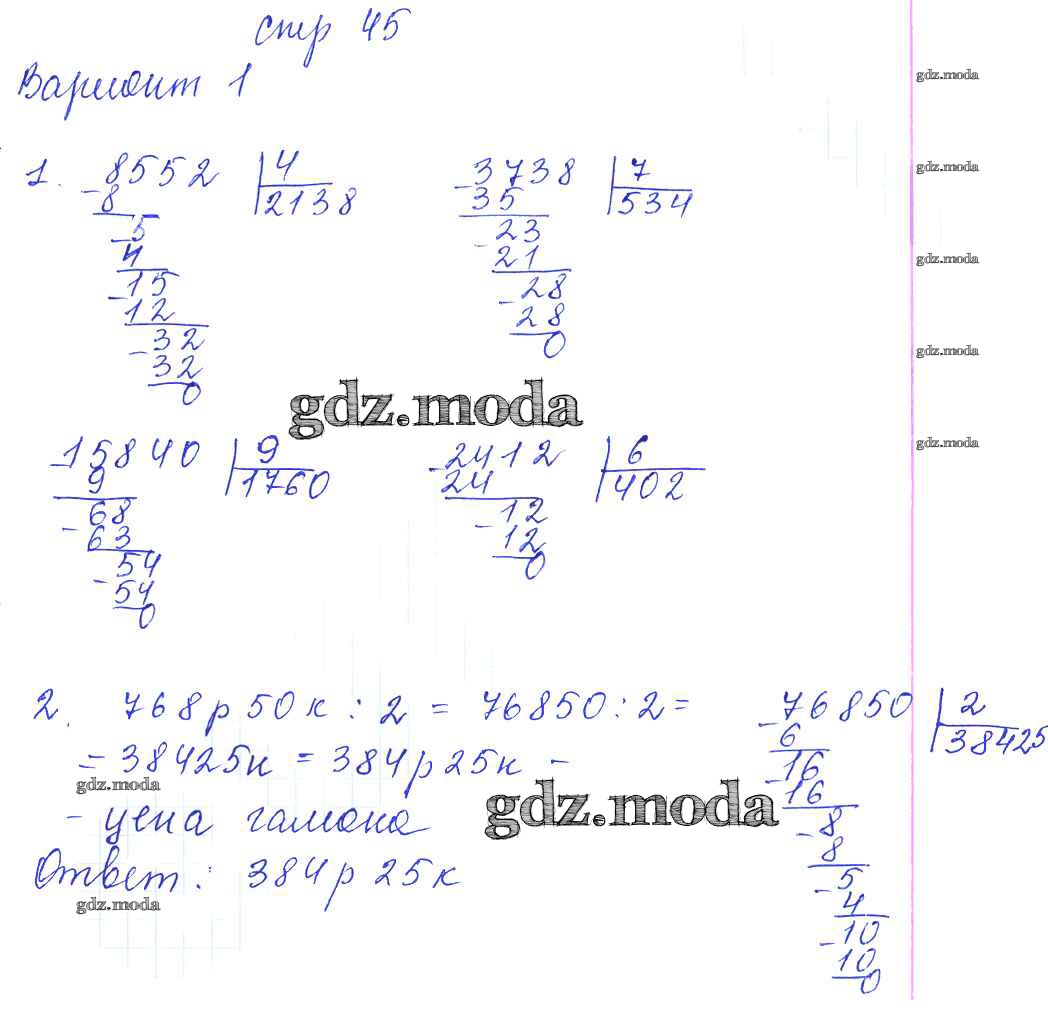 стр 45
Вариант 1
1. 8552 | 4
- 8 | 2138
- 5
4
- 15
12
- 32
32
0
- 3738 | 7
35 | 534
- 23
21
- 28
28
0
gdz.moda
- 15840 | 9
9 | 1760
- 68
63
- 54
54
0
- 2412 | 6
24 | 402
- 12
12
0
2. 768 р 50 к : 2 = 76850 : 2 =
= 38425 к = 384 р 25 к -
gdz.moda
- цена гамака
Ответ: 384 р 25 к
gdz.moda
- 76850 | 2
6 | 38425
- 16
16
- 8
8
- 5
4
- 10
10
0
gdz.moda
gdz.moda
gdz.moda
gdz.moda
gdz.moda
gdz.moda